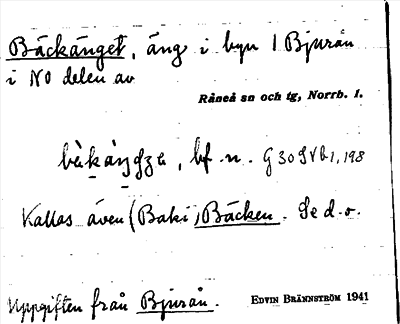 Bäckänget, äng i byn 1 Bjurån
i NO delen av
Råneå sn och tg, Norrb. l.
bf. n. G 30
Kallas även (Baki) Bäcken. Se d.o.
Uppgiften från Bjurån.
EDVIN BRÄNNSTRÖM 1941